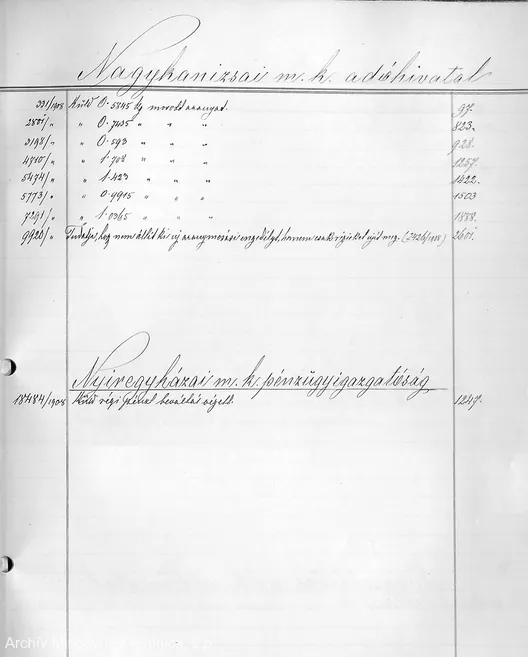 Nagykanizsai m. k. adóhivatal
331/1908 Küld 0·5845 dg mosott aranyat. 97.
2801/„ „ 0·7435 „ „ „ 823.
3198/„ „ 0·593 „ „ „ 928.
4710/„ „ 1·708 „ „ „ 1257.
5474/„ „ 1·423 „ „ „ 1422.
5773/„ „ 0·9915 „ „ „ 1503
7291/„ „ 1·0365 „ „ „ 1888.
9920/„ Tudatja, hogy nem állít ki új aranymosási engedélyt, hanem csak régieket újít meg. (2426/908) 2601.
Nyiregyházai m. k. pénzügyigazgatóság
18484/1908 Küld régi pénzt beváltás végett. 1247.
Archív